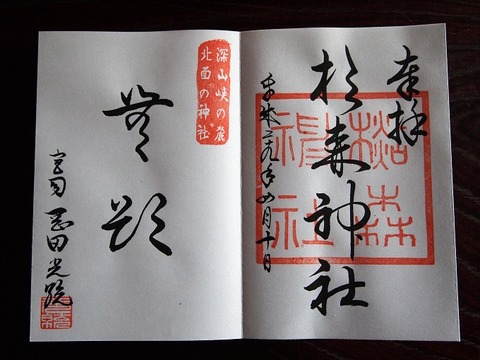 奉拝
松森神社
平成二九年四月十日
松森
神社
深山峡の麓
北面の神社
無
宮司 田光